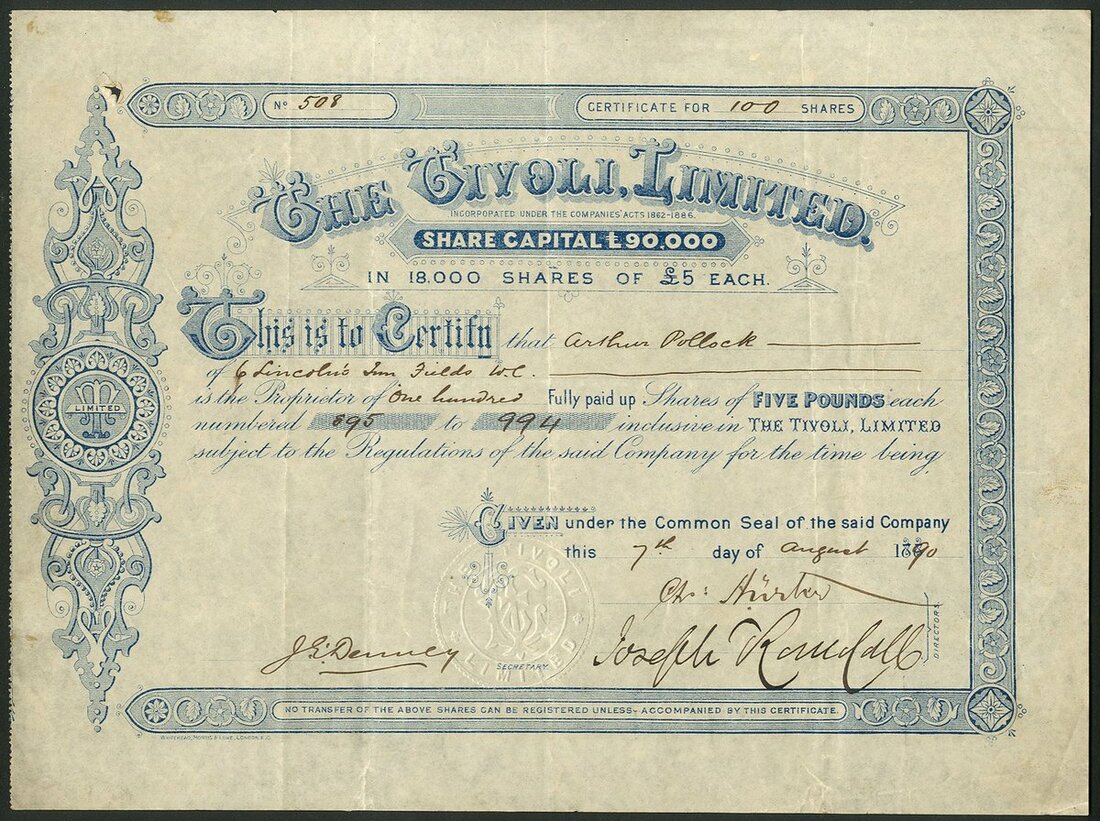 No 508
CERTIFICATE FOR 100 SHARES
THE TIVOLI, LIMITED.
INCORPOPATED UNDER THE COMPANIES' ACTS 1862-1886.
SHARE CAPITAL £90,000
IN 18,000 SHARES OF £5 EACH.
This is to Certify that Arthur Pollock
of 6 Lincoln's Inn Fields W.C.
is the Proprietor of One hundred Fully paid up Shares of FIVE POUNDS each
numbered 895 to 994 inclusive in THE TIVOLI, LIMITED
subject to the Regulations of the said Company for the time being
LIMITED
GIVEN under the Common Seal of the said Company
this 7th day of August 1890
THE TIVOLI LIMITED
DIRECTORS.
J E Denney
SECRETARY.
Joseph
NO TRANSFER OF THE ABOVE SHARES CAN BE REGISTERED UNLESS ACCOMPANIED BY THIS CERTIFICATE.
WHITEHEAD, MORRIS & LOWE, LONDON, E.C.